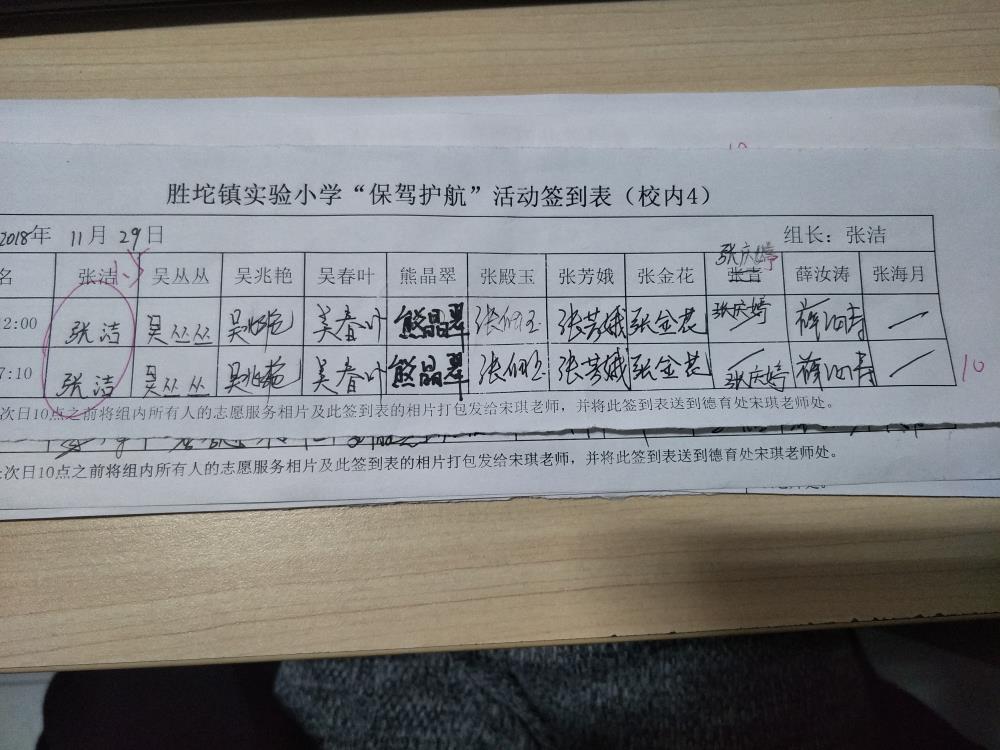 胜坨镇实验小学“保驾护航”活动签到表（校内4）
2018年 11月 29日 组长：张洁
张庆婷
名 张洁 吴丛丛 吴兆艳 吴春叶 熊晶翠 张殿玉 张芳娥 张金花 薛汝涛 张海月
2:00 张洁 吴丛丛 吴兆艳 吴春叶 熊晶翠 张殿玉 张芳娥 张金花 张庆婷 薛汝涛 一
7:10 张洁 吴丛丛 吴兆艳 吴春叶 熊晶翠 张殿玉 张芳娥 张金花 张庆婷 薛汝涛 一
10
次日10点之前将组内所有人的志愿服务相片及此签到表的相片打包发给宋琪老师，并将此签到表送到德育处宋琪老师处。
次日10点之前将组内所有人的志愿服务相片及此签到表的相片打包发给宋琪老师，并将此签到表送到德育处宋琪老师处。